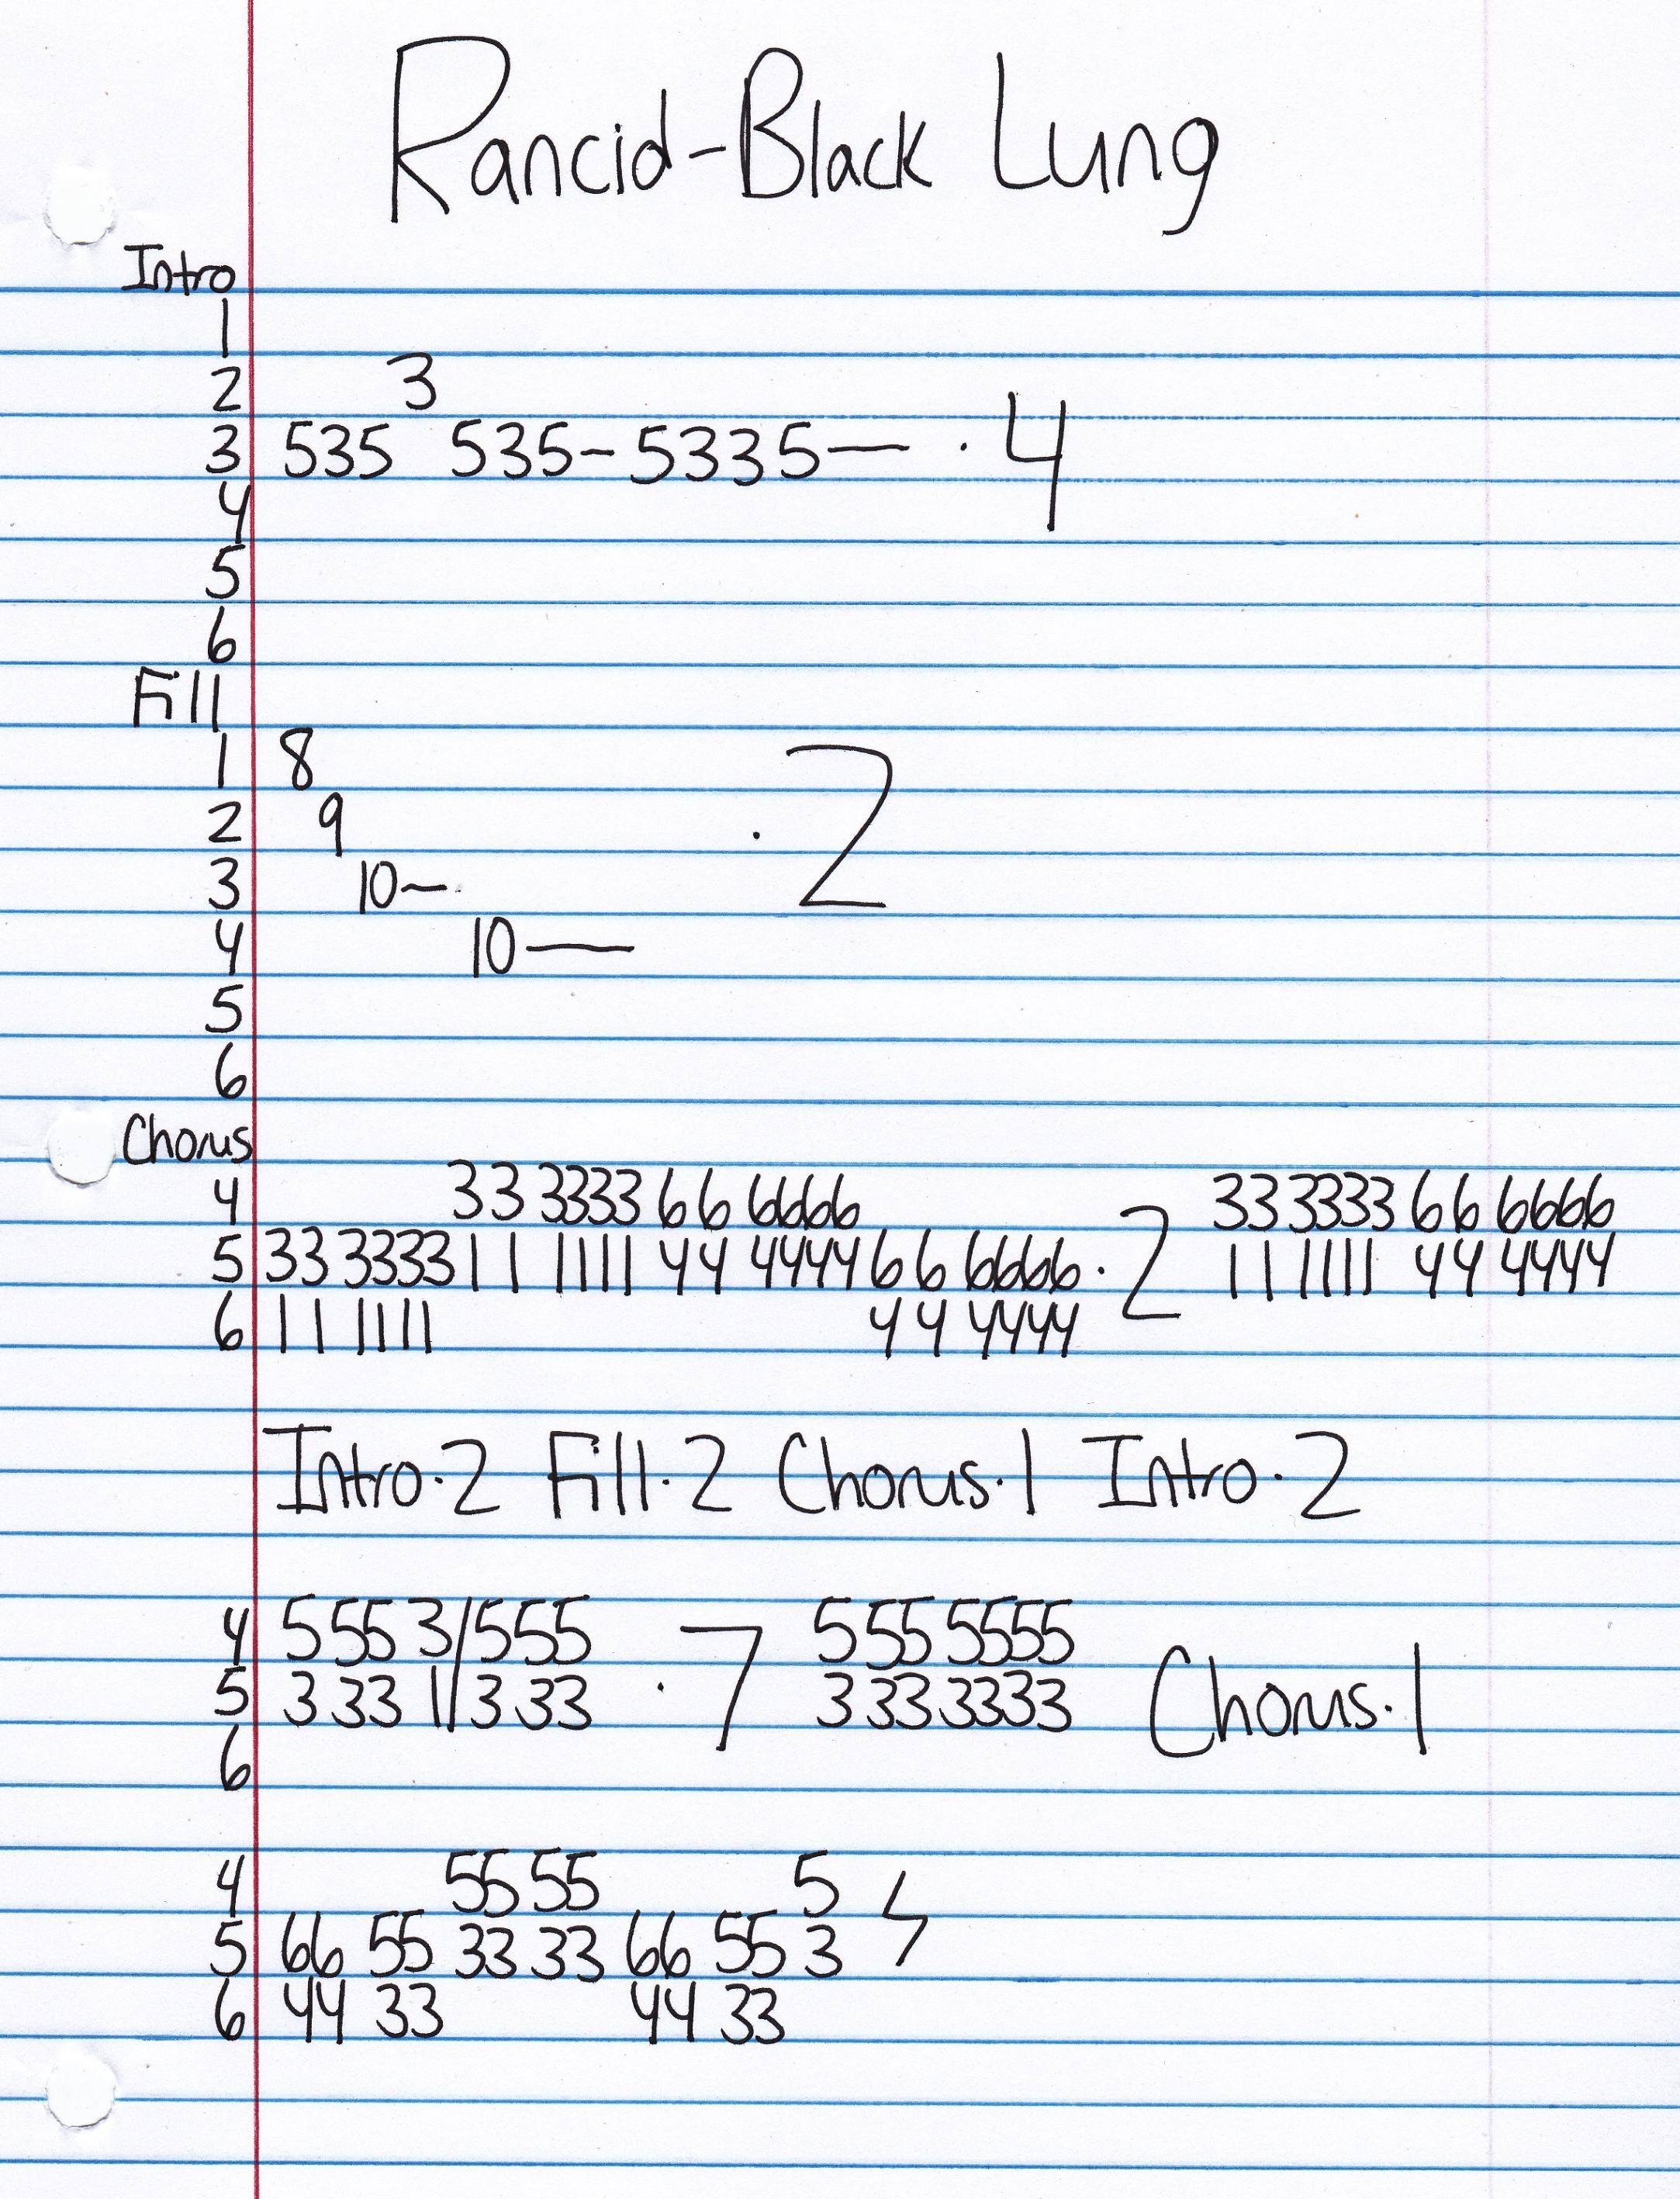 Rancid-Black Lung
Intro
1
2 3
3 535 535-5335— · 4
4
5
6
Fill
1 8
2 9 · 2
3 10-
4 10—
5
6
Chorus
4 33 3333 66 6666 33 3333 66 6666
5 33 3333 11 1111 44 4444 66 6666 · 2 11 1111 44 4444
6 11 1111 44 4444
Intro·2 Fill·2 Chorus·1 Intro·2
4 5 55 3/5 55 · 7 5 55 5555
5 3 33 1/3 33 3 33 3333 Chorus·1
6
4 55 55 5
5 66 55 33 33 66 55 3
6 44 33 44 33